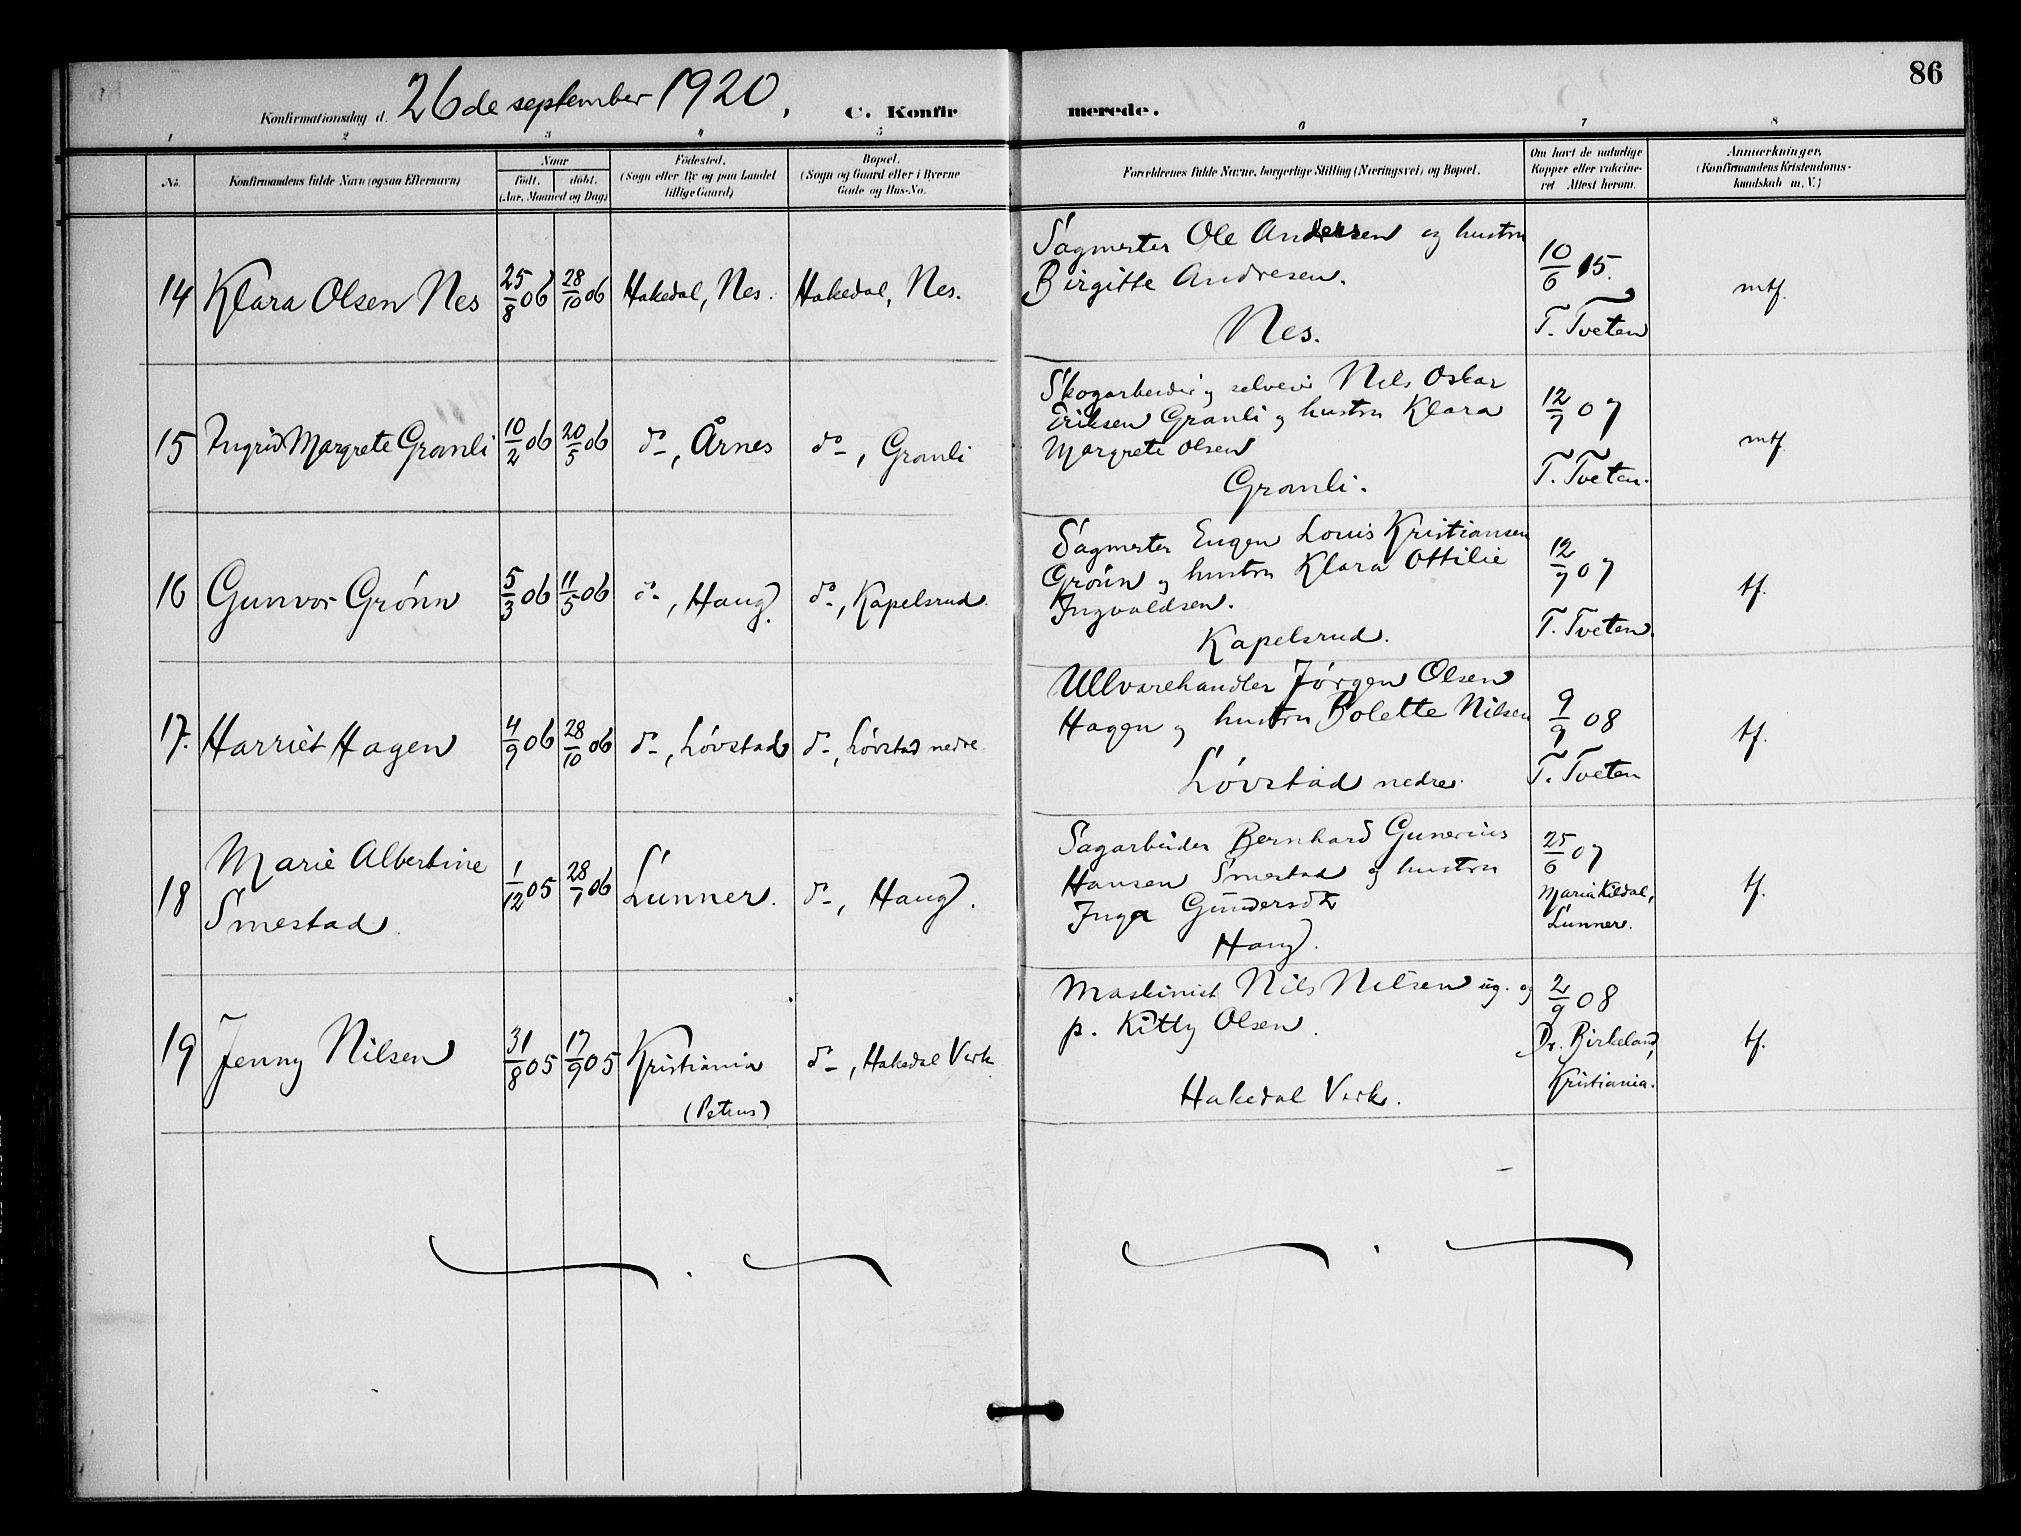 86
Konfirmationsdag d. 26 de september 1920, C. Konfirmerede.
1 2 3 4 5 6 7 8
No.
Konfirmandens fulde Navn (ogsaa Efternavn)
Naar
født. døbt.
(Aar, Maaned og Dag)
Fødested.
(Sogn eller By og paa Landet
tillige Gaard)
Bopæl.
(Sogn og Gaard eller i Byerne
Gade og Hus-No.
Forældrenes fulde Navne, borgerlige Stilling (Næringsvei) og Bopæl.
Om havt de naturlige
Kopper eller vakcine-
ret Attest herom.
Anmærkninger.
(Konfirmandens Kristendoms-
kundskab m. V.)
14 Klara Olsen Nes 25/8 06 28/10 06 Hakedal, Nes. Hakedal, Nes.
Sagmester Ole Andersen og hustru
Birgitte Andresen.
Nes.
10/6 15.
T. Tveten
mtf.
15 Ingrid Margrete Granli 10/2 06 20/5 06 do, Årnes do, Granli
Skogarbeider og selveier Nils Oskar
Eriksen Granli og hustru Klara
Margrete Olsen
Granli.
12/7 07
T. Tveten.
mtf
16 Gunvor Grønn 5/3 06 11/5 06 do, Haug. do, Kapelsrud.
Sagmester Eugen Louis Kristiansen
Grønn og hustru Klara Ottilie
Ingvaldsen.
Kapelsrud.
12/7 07
T. Tveten.
tf.
17. Harriet Hagen 4/9 06 28/10 06 do, Løvstad do, Løvstad nedre
Ullvarehandler Jørgen Olsen
Hagen og hustru Bolette Nilsen
Løvstad nedre.
9/9 08
T. Tveten
tf.
18 Marie Albertine
Smestad. 1/12 05 28/1 06 Lunner. do, Haug.
Sagarbeider Bernhard Gunerius
Hansen Smestad og hustru
Inga Gundersdtr
Haug.
25/6 07
Maria Kildal,
Lunner.
tf.
19 Jenny Nilsen 31/8 05 17/9 05 Kristiania
(Petrus) do, Hakedal Verk.
Maskinist Nils Nilsen ug. og
p. Kitty Olsen.
Hakedal Verk.
2/9 08
Dr. Birkeland,
Kristiania.
tf.